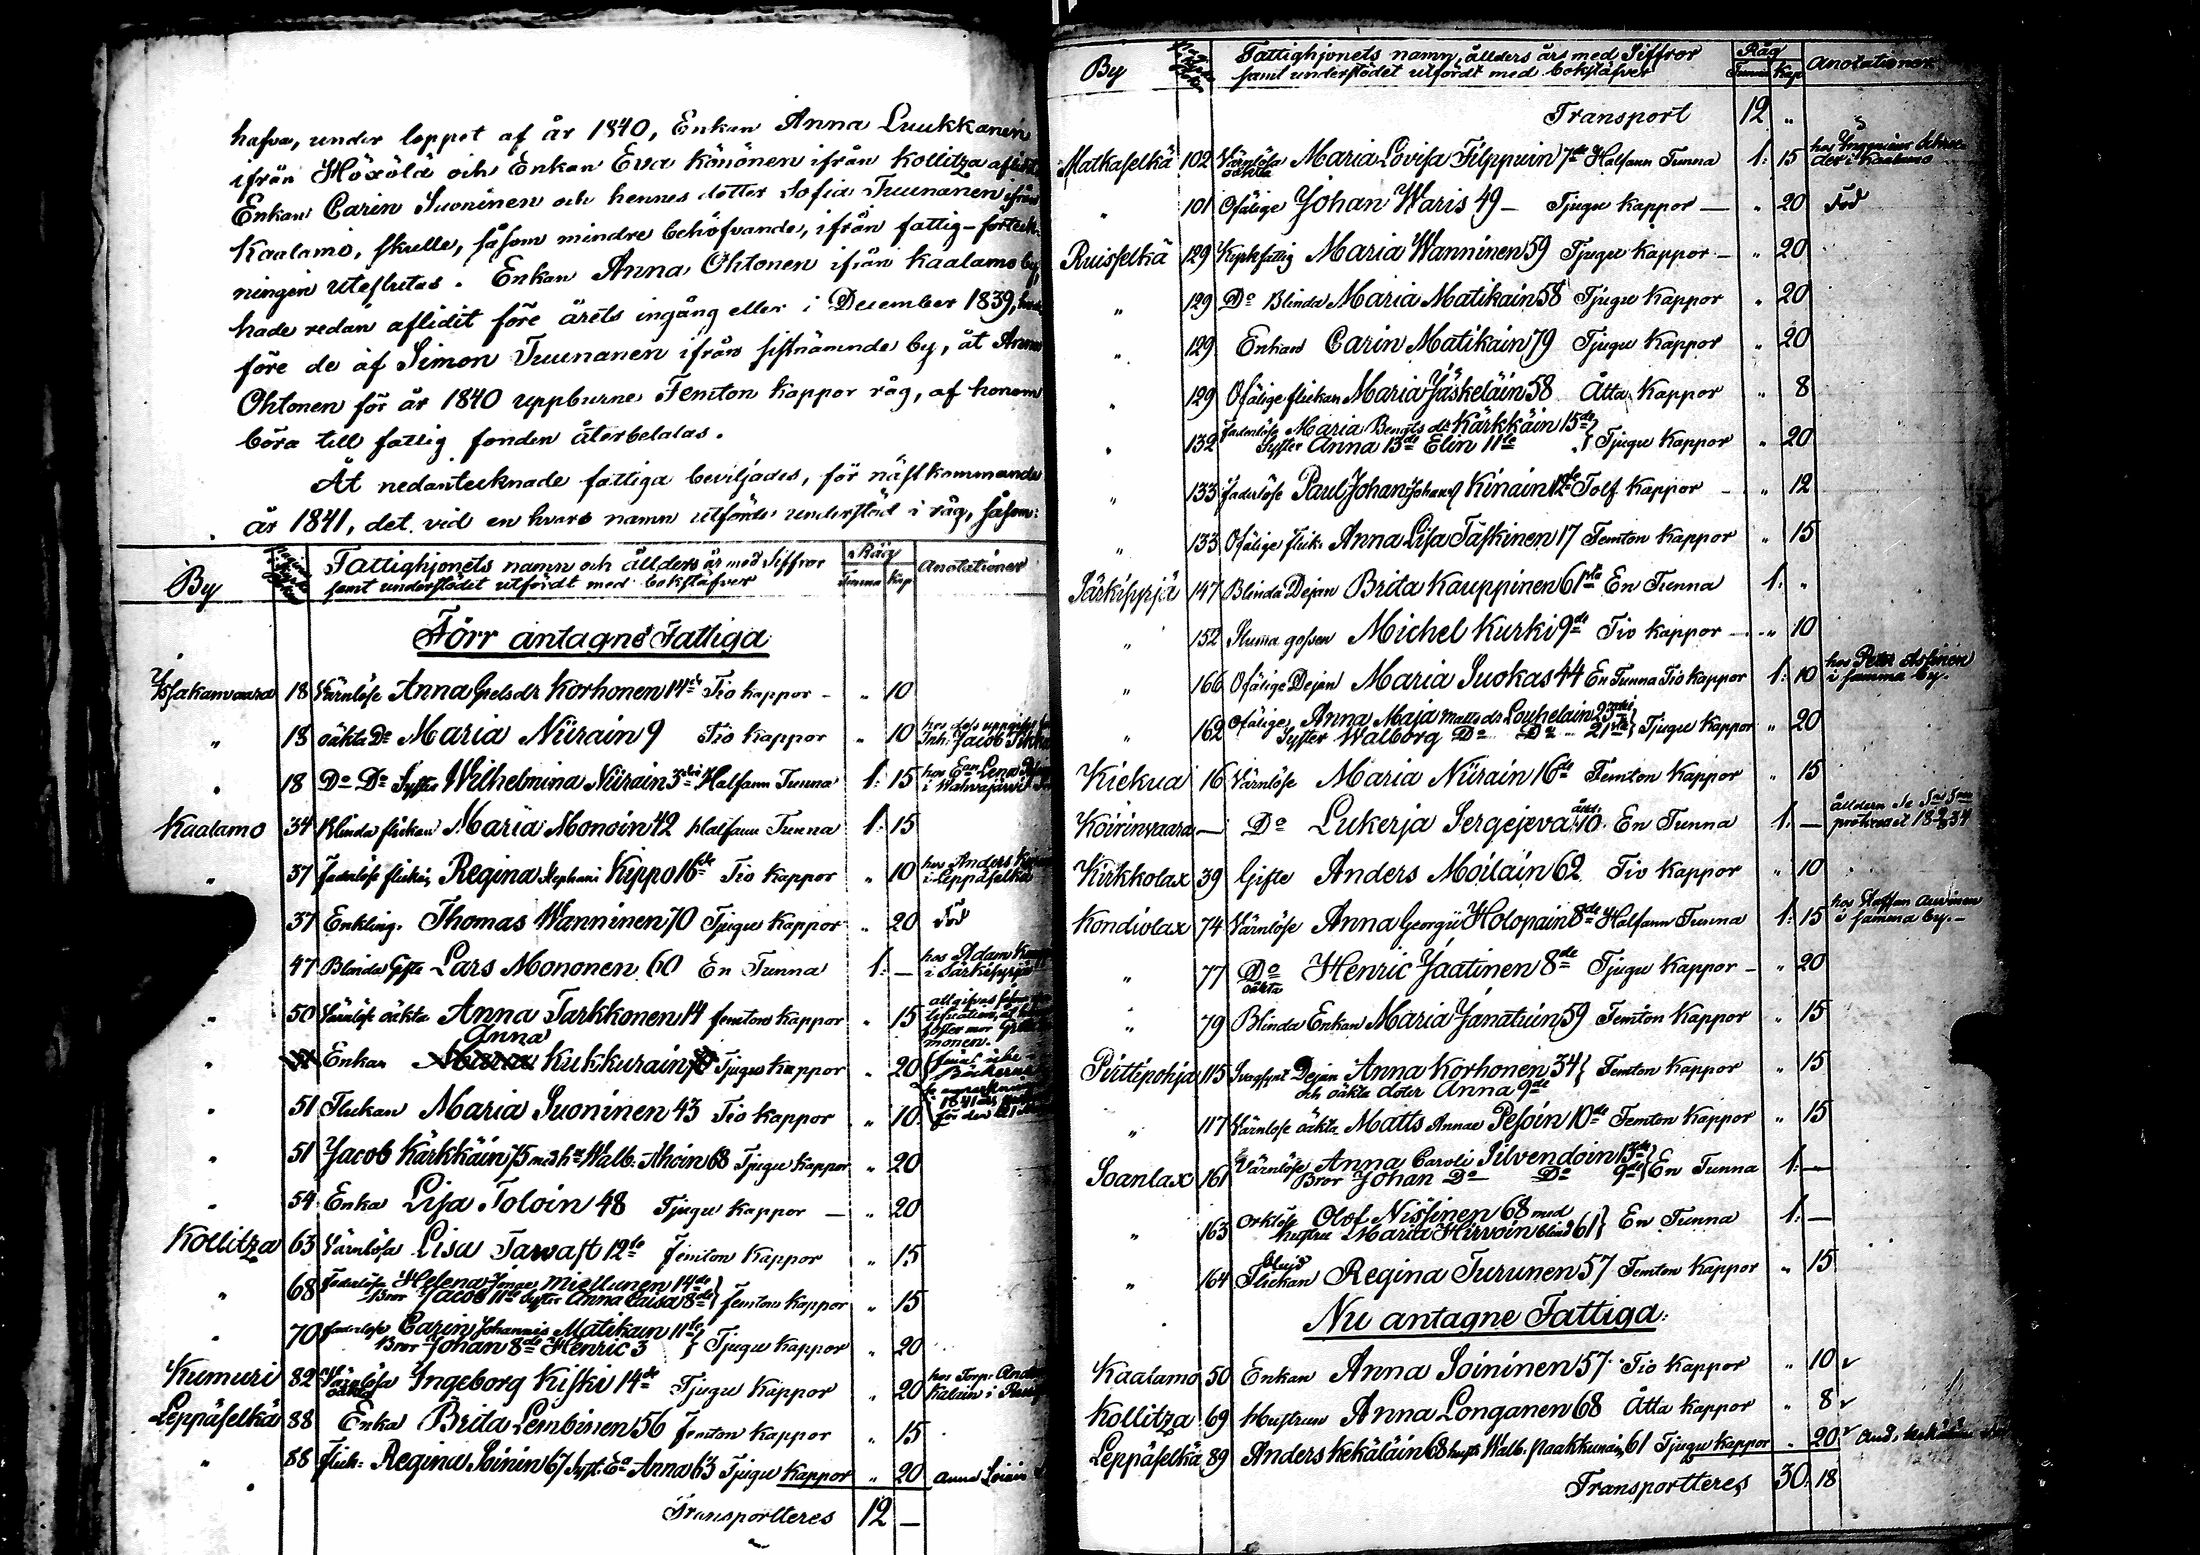 hafva, under loppet af år 1840, Enkan Anna Luukkanen
ifrån Höxölä och Enkan Eva Könönen ifrån Kollitza aflidit,
Enkan Carin Suoninen och hennes dotter Sofia Tuunanen ifrån
Kaalamo, skulle, såsom mindre behöfvande, ifrån fattig-förteck-
ningen uteslutas. Enkan Anna Ohtonen ifrån Kaalamo by
hade redan aflidit före årets ingång eller i December 1839,
före de af Simon Tuunanen ifrån sistnämnde by, åt Anna
Ohtonen för år 1840 uppburne Femton kappor råg, af honom
böra till fattig fonden återbetalas.
Åt nedantecknade fattiga beviljades, för näst kommande
år 1841, det vid en hvars namn utförde understöd i råg, såsom:
By Fattighjonets namn och ållders år med Siffror samt understödet utfördt med bokstäfver Råg Tunna Kap Anotationer
Förr antagne Fattiga
Ysakanvaara 18 Värnlöse Anna Korhonen 14de Tio kappor - " 10
" 18 oäkta Do Maria Niirain 9 Tio kappor " 10 Inh. Jacob
" 18 Do Do Syster Wilhelmina Niirain 3 Halfann Tunna 1: 15 hos Lena
Kaalamo 34 Blinda flickan Maria Monoin 42 Halfann Tunna 1: 15
" 37 Faderlöse flickan Regina Stephani Kippo 16de Tio kappor " 10 hos Anders i Leppäselkä
" 37 Enkling. Thomas Wanninen 70 Tjugu kappor " 20 död
47 Blinda Gifte Lars Mononen 60 En Tunna 1: — hos Adam i Särkisyrjä
" 50 Värnlöse oäkta Anna Tarkkonen 14 femton kappor " 15
" 51 Enkan Anna Kukkurain Tjugu kappor " 20
" 51 Flickan Maria Suoninen 43 Tio kappor " 10
" 51 Jacob Kärkkäin 75 med hu Walb. Ahoin 68 Tjugu kappor " 20
" 54 Enka Lisa Toloin 48 Tjugu kappor — " 20
Kollitza 63 Värnlösa Lisa Tarvast 12te femton kappor " 15
" 68 Faderlösa Helena Jonae Miettunen 14de Bror Jacob 11te Syster Anna Caisa 8de } femton kappor " 15
" 70 faderlöse Carin Johannis Matikain 11te Bror Johan 8de Henric 3 } Tjugu kappor " 20
Kumuri 82 Värnlösa oäkta Ingeborg Kiski 14de Tjugu kappor " 20 hos Torp:
Leppäselkä 88 Enka Brita Lembinen 56 femton kappor " 15
" 88 flick: Regina Soinin 67 Syst: Anna 63 Tjugu kappor " 20 Anna Soinin
Transportteres 12 —
By Fattighjonets namn, ållders års med Siffror samt understödet utfördt med bokstäfver Råg Tunna Kap Anotationer
Transport 12 "
Matkaselkä 102 Värnlösa oäkta Maria Lovisa Filppuin 7de Halfann Tunna 1: 15
" 101 Ofälige Johan Waris 49 — Tjugu kappor — " 20 död
Ruisselkä 129 Maria Wanninen 59 Tjugu kappor — " 20
" 129 Do Blinda Maria Matikain 58 Tjugu kappor " 20
" 129 Enkan Carin Matikain 79 Tjugu kappor " 20
" 129 Ofälige flickan Maria Jäskeläin 58 Åtta kappor " 8
" 132 Faderlösa Maria Bengts dr Kärkkäin 15de Syster Anna 13de Elin 11te } Tjugu kappor " 20
" 133 Faderlöse Paul Johan Kinain 12te Tolf kappor — " 12
" 133 Ofälige flick: Anna Lisa Täskinen 17 Femton kappor " 15
Särkisyrjä 147 Blinda Dejan Brita Kauppinen 61sta En Tunna 1: "
" 152 Stuma gossen Michel Kurki 9de Tio kappor — " 10
" 166 Ofälige Dejan Maria Suokas 44 En Tunna Tio kappor 1: 10 hos Peter Assinen i samma by.
" 162 Ofälige Anna Maja Matts dr Louhelain 23 Syster Walborg Do Do 21sta } Tjugu kappor " 20
Kiekua 16 Värnlöse Maria Niirain 16de Femton kappor " 15
Koirinvaara — Do Lukerja Sergejeva 40. En Tunna 1: —
Kirkkolax 39 Gifte Anders Moilain 62 Tio kappor " 10
Kondiolax 74 Värnlöse Anna Georgii Holopain 8de Halfann Tunna 1: 15 hos Staffan Auvinen i samma by.—
" 77 Do oäkta Henric Jaatinen 8de Tjugu kappor — " 20
" 79 Blinda Enkan Maria Janatuin 59 Femton kappor " 15
Puttipohja 115 Dejan Anna Korhonen 34 och oäkta doter Anna 9de } Femton kappor " 15
" 117 Värnlöse oäkta Matts Annae Pesoin 10de Femton kappor " 15
Soanlax 161 Värnlöse Anna Caroli Silvendoin 13de Bror Johan Do Do 9de } En Tunna 1: —
" 163 Orklös Olof Nissinen 68 med hustru Maria Hirvoin blind 61 } En Tunna 1: —
" 164 Flickan Regina Turunen 57 Femton kappor " 15
Nu antagne Fattiga:
Kaalamo 50 Enkan Anna Soininen 57 Tio kappor " 10
Kollitza 69 Hustrun Anna Longanen 68 Åtta kappor " 8
Leppäselkä 89 Anders Kekäläin 68 hust: Walb. Paakkunain 61 Tjugu kappor " 20
Transportteres 30: 18